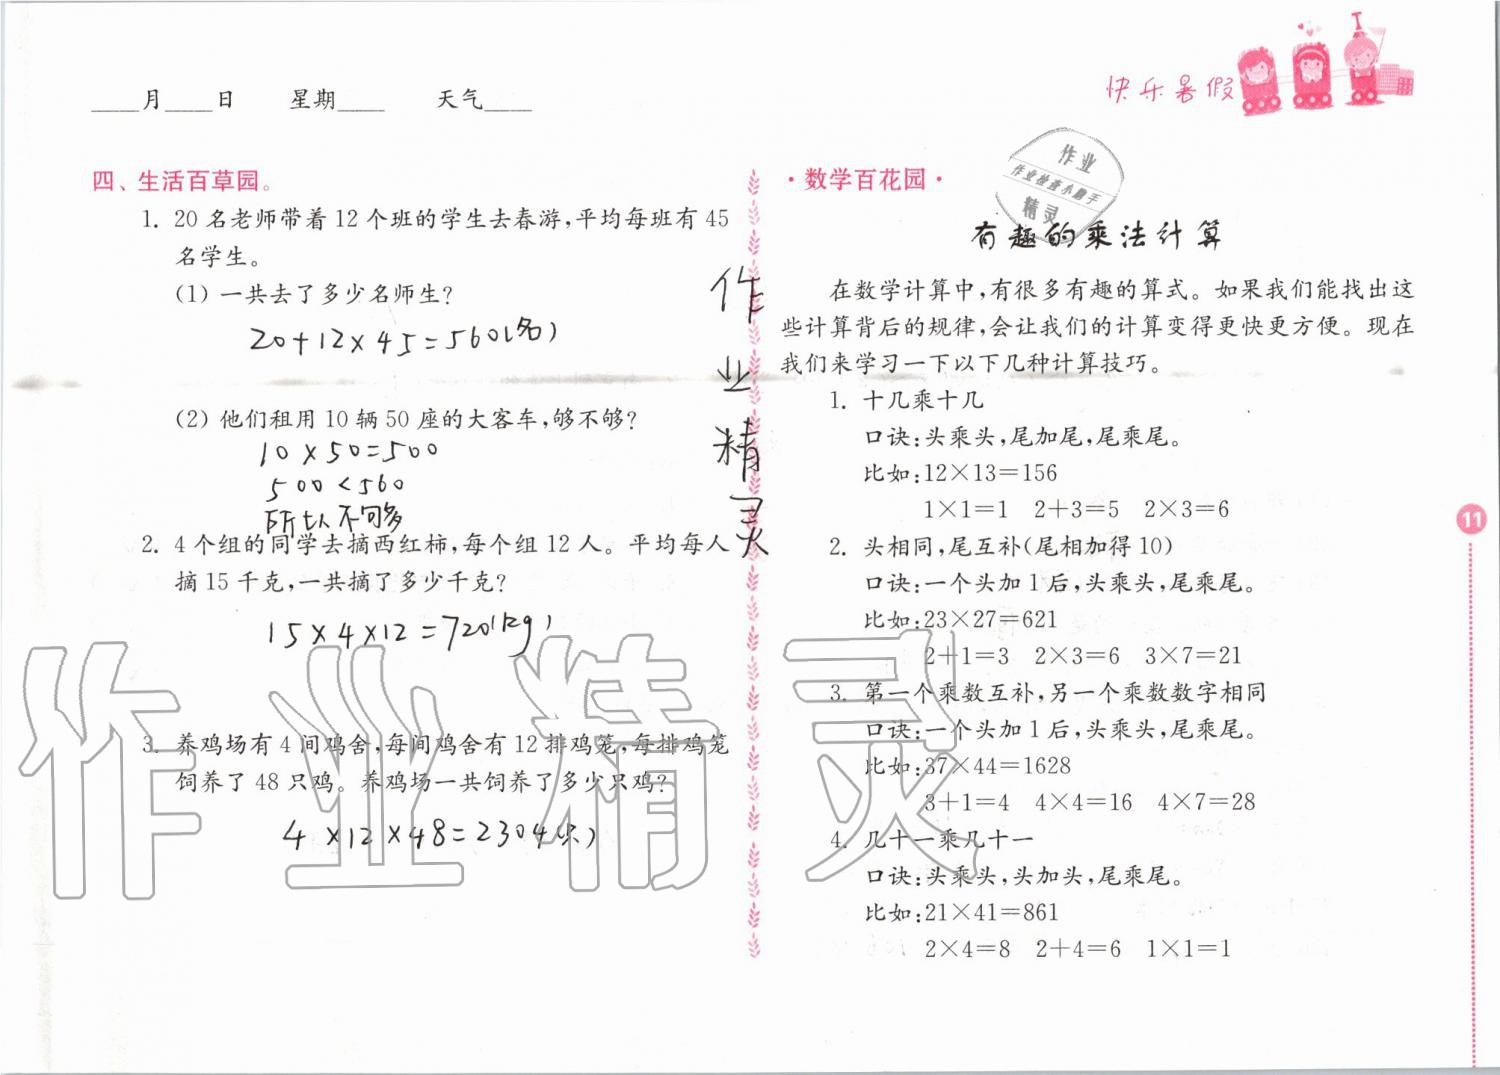 ____月____日　　星期____　　天气____
快乐暑假
四、生活百草园。
1. 20 名老师带着 12 个班的学生去春游,平均每班有 45
名学生。
(1) 一共去了多少名师生?
20+12×45=560(名)
(2) 他们租用 10 辆 50 座的大客车,够不够?
10×50=500
500<560
所以不够
2. 4 个组的同学去摘西红柿,每个组 12 人。平均每人
摘 15 千克,一共摘了多少千克?
15×4×12=720(kg)
3. 养鸡场有 4 间鸡舍,每间鸡舍有 12 排鸡笼,每排鸡笼
饲养了 48 只鸡。养鸡场一共饲养了多少只鸡?
4×12×48=2304(只)
作业精灵
作业精灵
·数学百花园·
作业
作业检查小助手
精灵
有趣的乘法计算
在数学计算中,有很多有趣的算式。如果我们能找出这
些计算背后的规律,会让我们的计算变得更快更方便。现在
我们来学习一下以下几种计算技巧。
1. 十几乘十几
口诀:头乘头,尾加尾,尾乘尾。
比如:12×13=156
1×1=1　2+3=5　2×3=6
2. 头相同,尾互补(尾相加得 10)
口诀:一个头加 1 后,头乘头,尾乘尾。
比如:23×27=621
2+1=3　2×3=6　3×7=21
3. 第一个乘数互补,另一个乘数数字相同
口诀:一个头加 1 后,头乘头,尾乘尾。
比如:37×44=1628
3+1=4　4×4=16　4×7=28
4. 几十一乘几十一
口诀:头乘头,头加头,尾乘尾。
比如:21×41=861
2×4=8　2+4=6　1×1=1
11